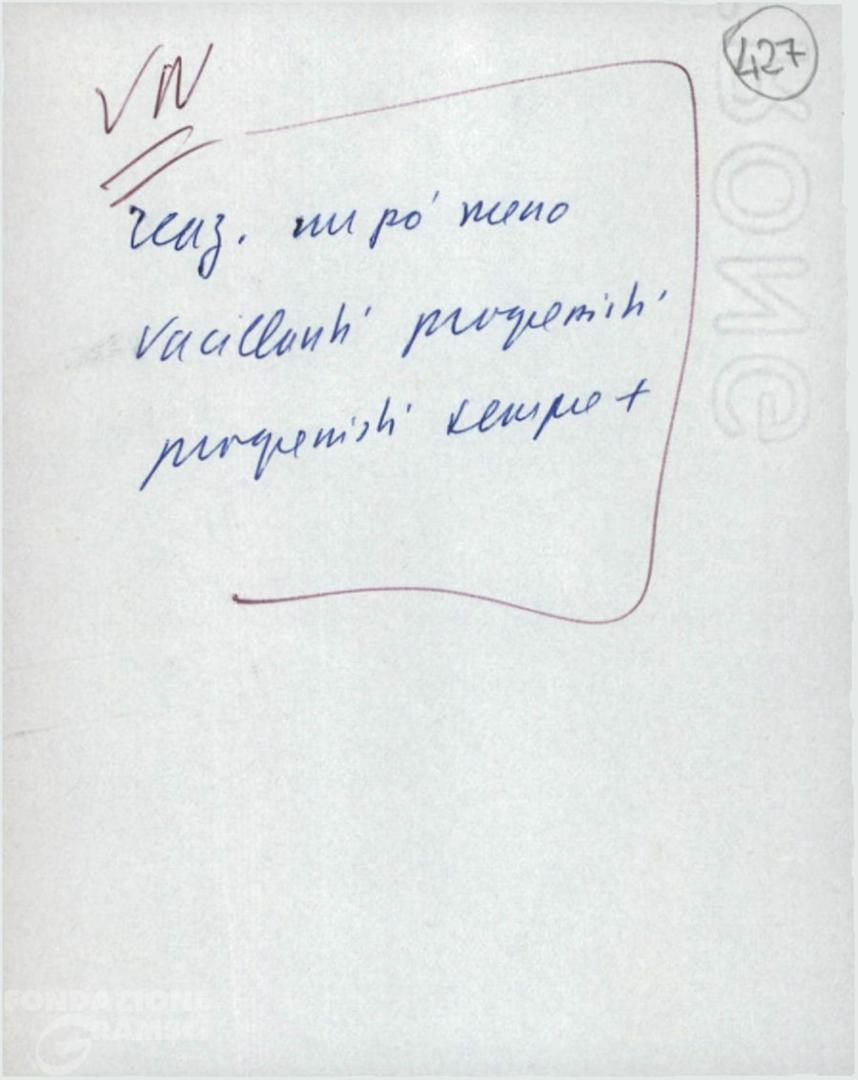 427
VN
reaz. un pó meno
vacillanti progressisti
progressisti sempre +
RONG
FONDAZIONE
GRAMSCI